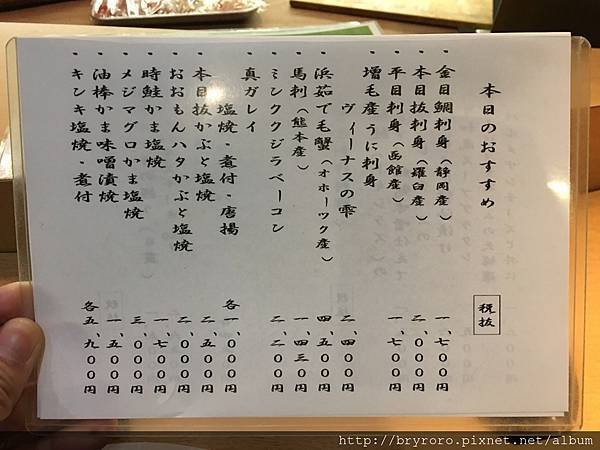 本日のおすすめ 税抜
・金目鯛刺身(静岡産) 一、七〇〇円
・本目抜刺身(羅臼産) 二、〇〇〇円
・平目刺身(函館産) 一、七〇〇円
・増毛産うに刺身
ヴィーナスの雫 二、四〇〇円
・浜茹で毛蟹(オホーツク産) 四、五〇〇円
・馬刺(熊本産) 一、四三〇円
・ミンククジラベーコン 二、二〇〇円
・真ガレイ
塩焼・煮付・唐揚 各一、〇〇〇円
・本目抜かぶと塩焼 二、五〇〇円
・おおもんハタかぶと塩焼 二、〇〇〇円
・時鮭かま塩焼 一、七〇〇円
・メジマグロかま塩焼 三、〇〇〇円
・油棒かま味噌漬焼 一、五〇〇円
・キンキ塩焼・煮付 各五、九〇〇円
http://bryroro.pixnet.net/album